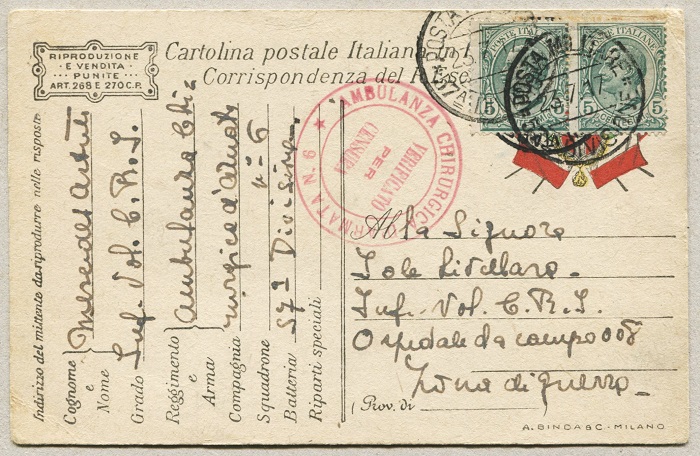 RIPRODUZIONE
E VENDITA
PUNITE
ART. 268 E 270 C.P.
Cartolina postale Italiana in
Corrispondenza del R. Ese
POSTE ITALIANE
5
5
POSTA MILITARE
57A
DIVIS
AMBULANZA CHIRURGICA
ARMATA N. 6
VERIFICATO
PER
CENSURA
Indirizzo del mittente da riprodurre nelle risposte
Cognome
e
Nome
Grado Inf. Vol. C. R. I.
Reggimento Ambulanza Chi-
e
Arma rurgica d'Armata
Compagnia n° 6
Squadrone 57a Divisione
Batteria
Riparti speciali
Alla Signora
Iole
Inf. Vol. C. R. I.
Ospedale da campo 008
Zona di guerra
(Prov. di
A. BINDA & C. - MILANO